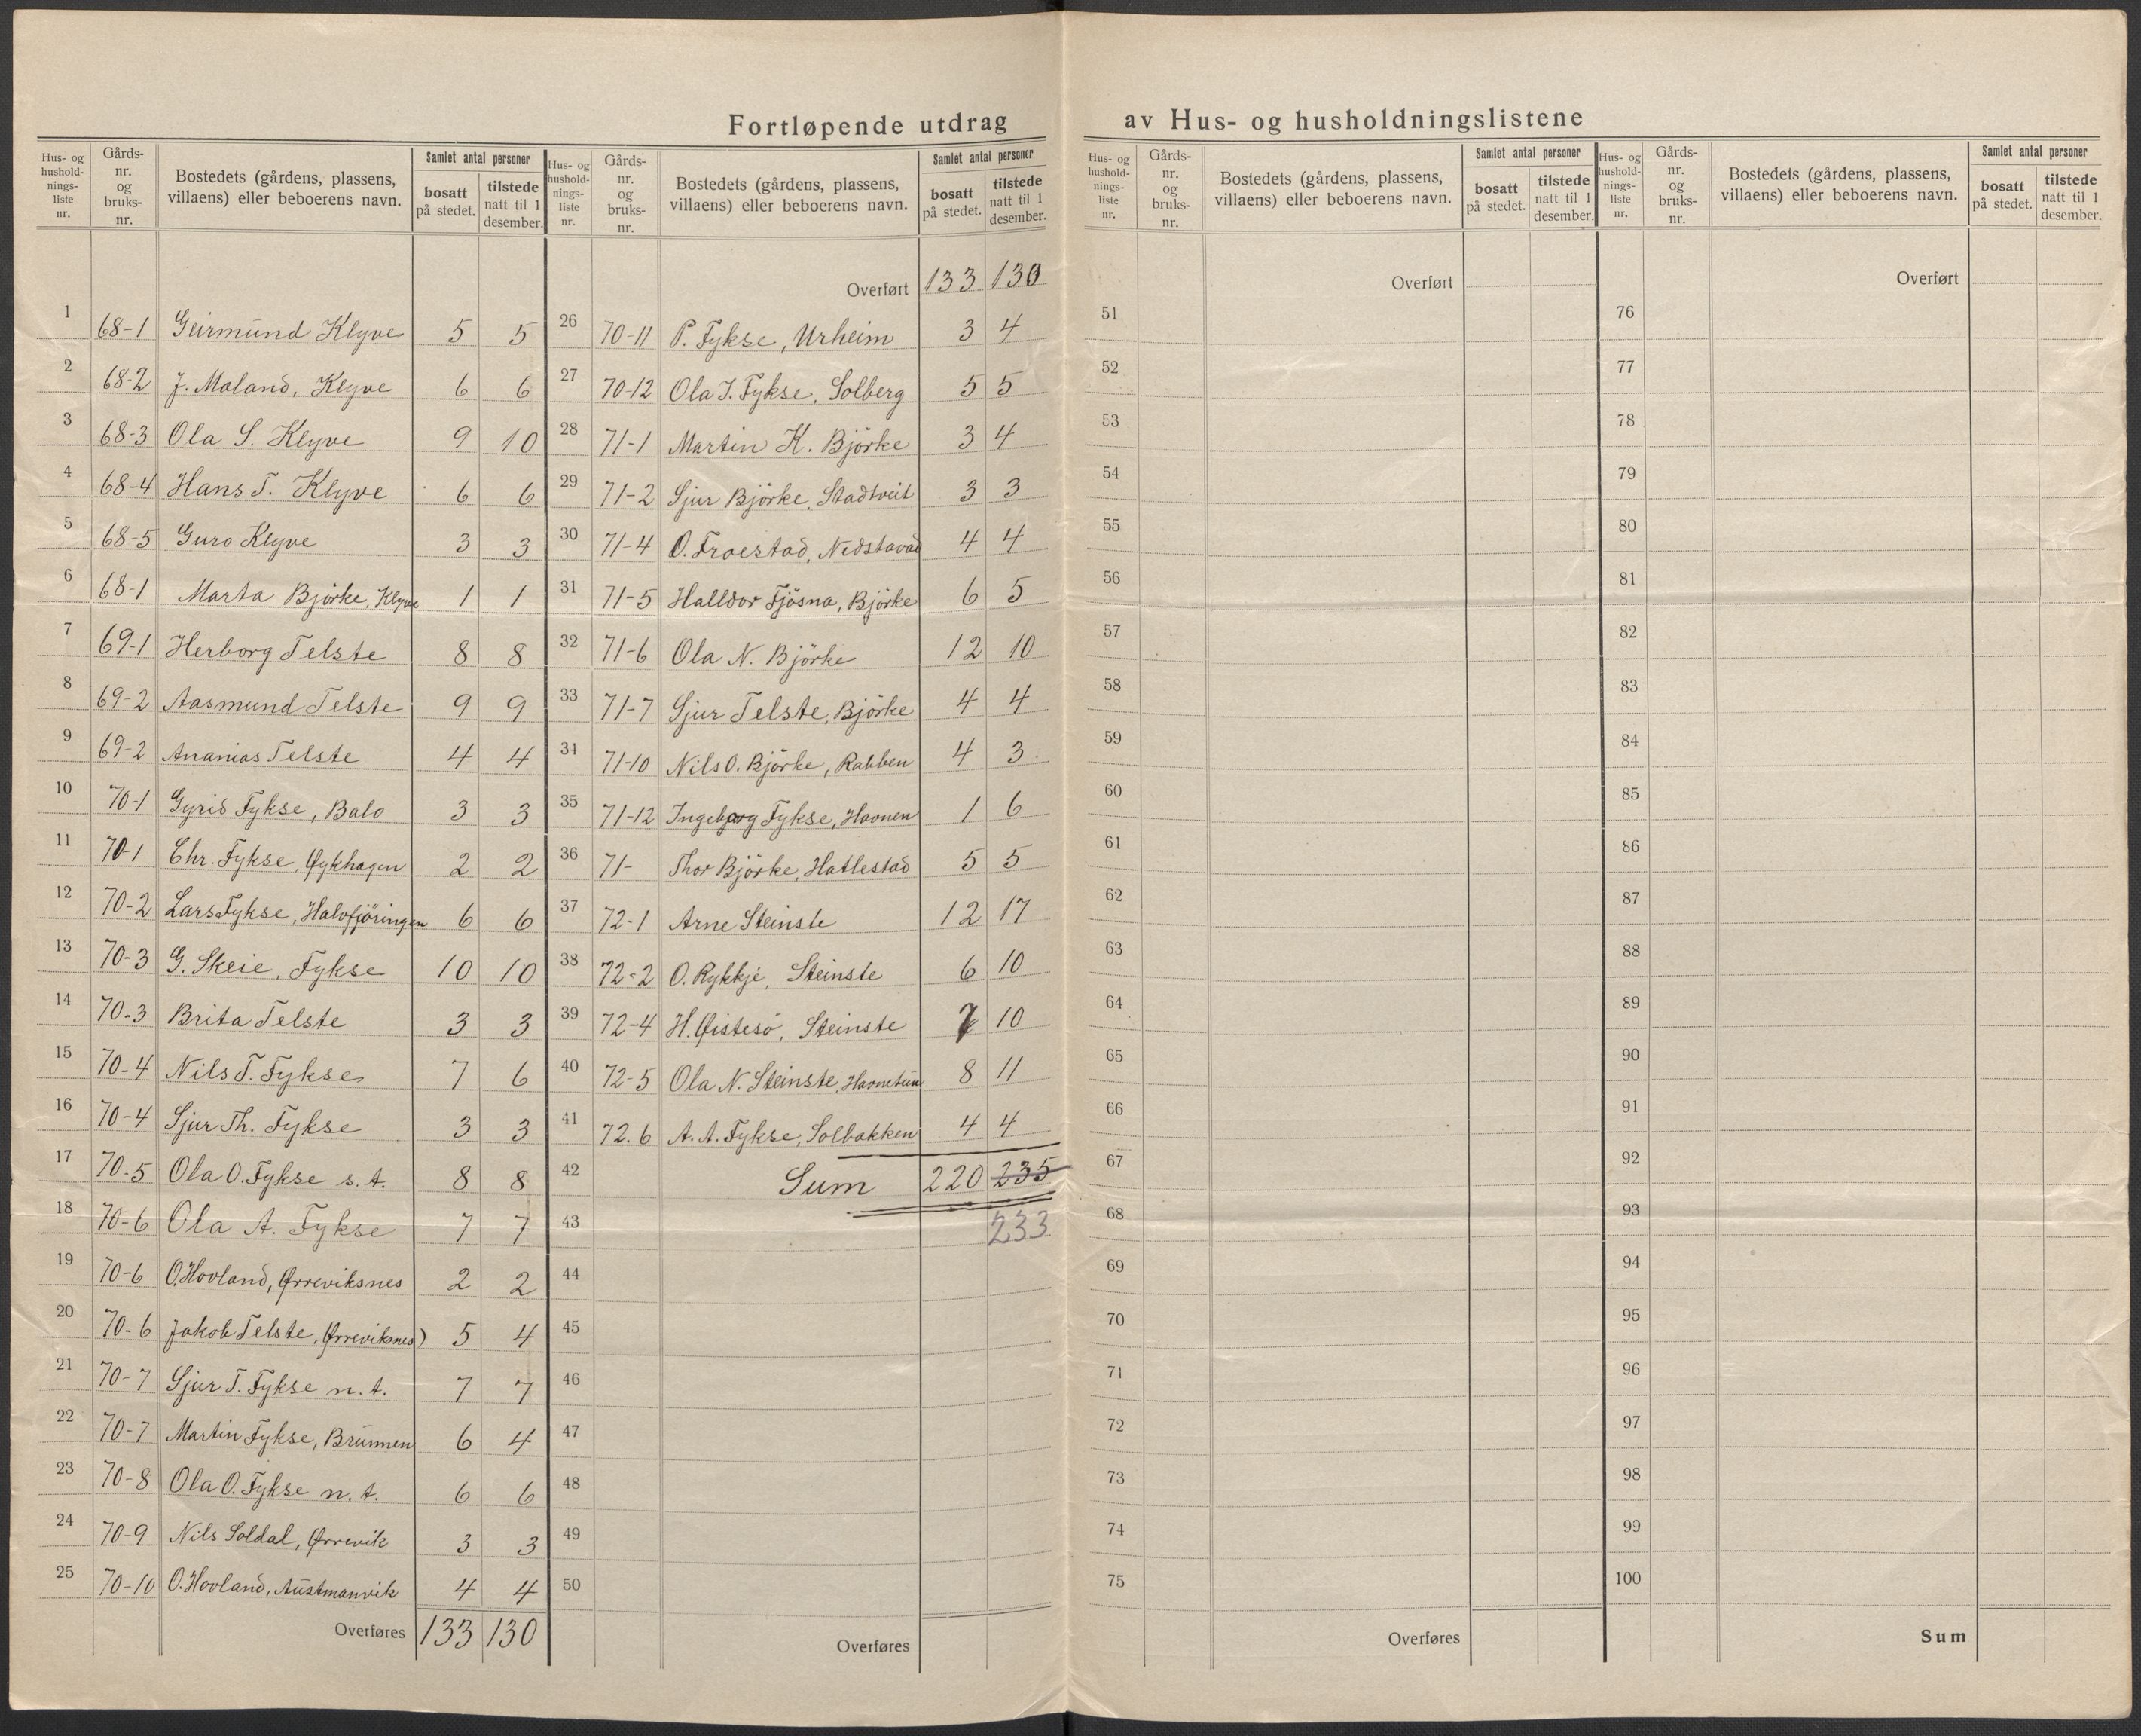 Fortløpende utdrag av Hus- og husholdningslistene
Hus- og hushold-nings-liste nr. | Gårds-nr. og bruks-nr. | Bostedets (gårdens, plassens, villaens) eller beboerens navn. | Samlet antal personer | bosatt på stedet. | tilstede natt til 1 desember.
1 68-1 Geirmund Klyve 5 5
2 68-2 J. Moland, Klyve 6 6
3 68-3 Ola S. Klyve 9 10
4 68-4 Hans T. Klyve 6 6
5 68-5 Guro Klyve 3 3
6 68-1 Marta Bjørke, Klyve 1 1
7 69-1 Herborg Telste 8 8
8 69-2 Aasmund Telste 9 9
9 69-2 Ananias Telste 4 4
10 70-1 Gyrid Fykse, Balo 3 3
11 70-1 Chr. Fykse, Øykhagen 2 2
12 70-2 Lars Fykse, Halvfjöringen 6 6
13 70-3 G. Skeie, Fykse 10 10
14 70-3 Brita Telste 3 3
15 70-4 Nils T. Fykse 7 6
16 70-4 Sjur Th. Fykse 3 3
17 70-5 Ola O. Fykse s. t. 8 8
18 70-6 Ola A. Fykse 7 7
19 70-6 O. Hovland, Ørreviksnes 2 2
20 70-6 Jakob Telste, Ørreviksnes) 5 4
21 70-7 Sjur T. Fykse n. t. 7 7
22 70-7 Martin Fykse, Brunnen 6 4
23 70-8 Ola O. Fykse n. t. 6 6
24 70-9 Nils Soldal, Ørrevik 3 3
25 70-10 O. Hovland, Austmanvik 4 4
Overføres 133 130
Hus- og hushold-nings-liste nr. | Gårds-nr. og bruks-nr. | Bostedets (gårdens, plassens, villaens) eller beboerens navn. | Samlet antal personer | bosatt på stedet. | tilstede natt til 1 desember.
Overført 133 130
26 70-11 P. Fykse, Urheim 3 4
27 70-12 Ola J. Fykse, Solberg 5 5
28 71-1 Martin K. Björke 3 4
29 71-2 Sjur Björke, Stadtveit 3 3
30 71-4 O. Froestad, Nedstavad 4 4
31 71-5 Halldor Fjösna, Björke 6 5
32 71-6 Ola N. Björke 12 10
33 71-7 Sjur Telste, Björke 4 4
34 71-10 Nils O. Björke, Rabben 4 3
35 71-12 Ingeborg Fykse, Havnen 1 6
36 71- Thor Björke, Hatlestad 5 5
37 72-1 Arne Steinste 12 17
38 72-2 O. Rykkje, Steinste 6 10
39 72-4 H. Øistesö, Steinste 7 10
40 72-5 Ola N. Steinste, Havnetun 8 11
41 72.6 A. A. Fykse, Solbakken 4 4
42 Sum 220 235
43 233
44
45
46
47
48
49
50
Overføres
Hus- og hushold-nings-liste nr. | Gårds-nr. og bruks-nr. | Bostedets (gårdens, plassens, villaens) eller beboerens navn. | Samlet antal personer | bosatt på stedet. | tilstede natt til 1 desember.
Overført
51
52
53
54
55
56
57
58
59
60
61
62
63
64
65
66
67
68
69
70
71
72
73
74
75
Overføres
Hus- og hushold-nings-liste nr. | Gårds-nr. og bruks-nr. | Bostedets (gårdens, plassens, villaens) eller beboerens navn. | Samlet antal personer | bosatt på stedet. | tilstede natt til 1 desember.
Overført
76
77
78
79
80
81
82
83
84
85
86
87
88
89
90
91
92
93
94
95
96
97
98
99
100
Sum